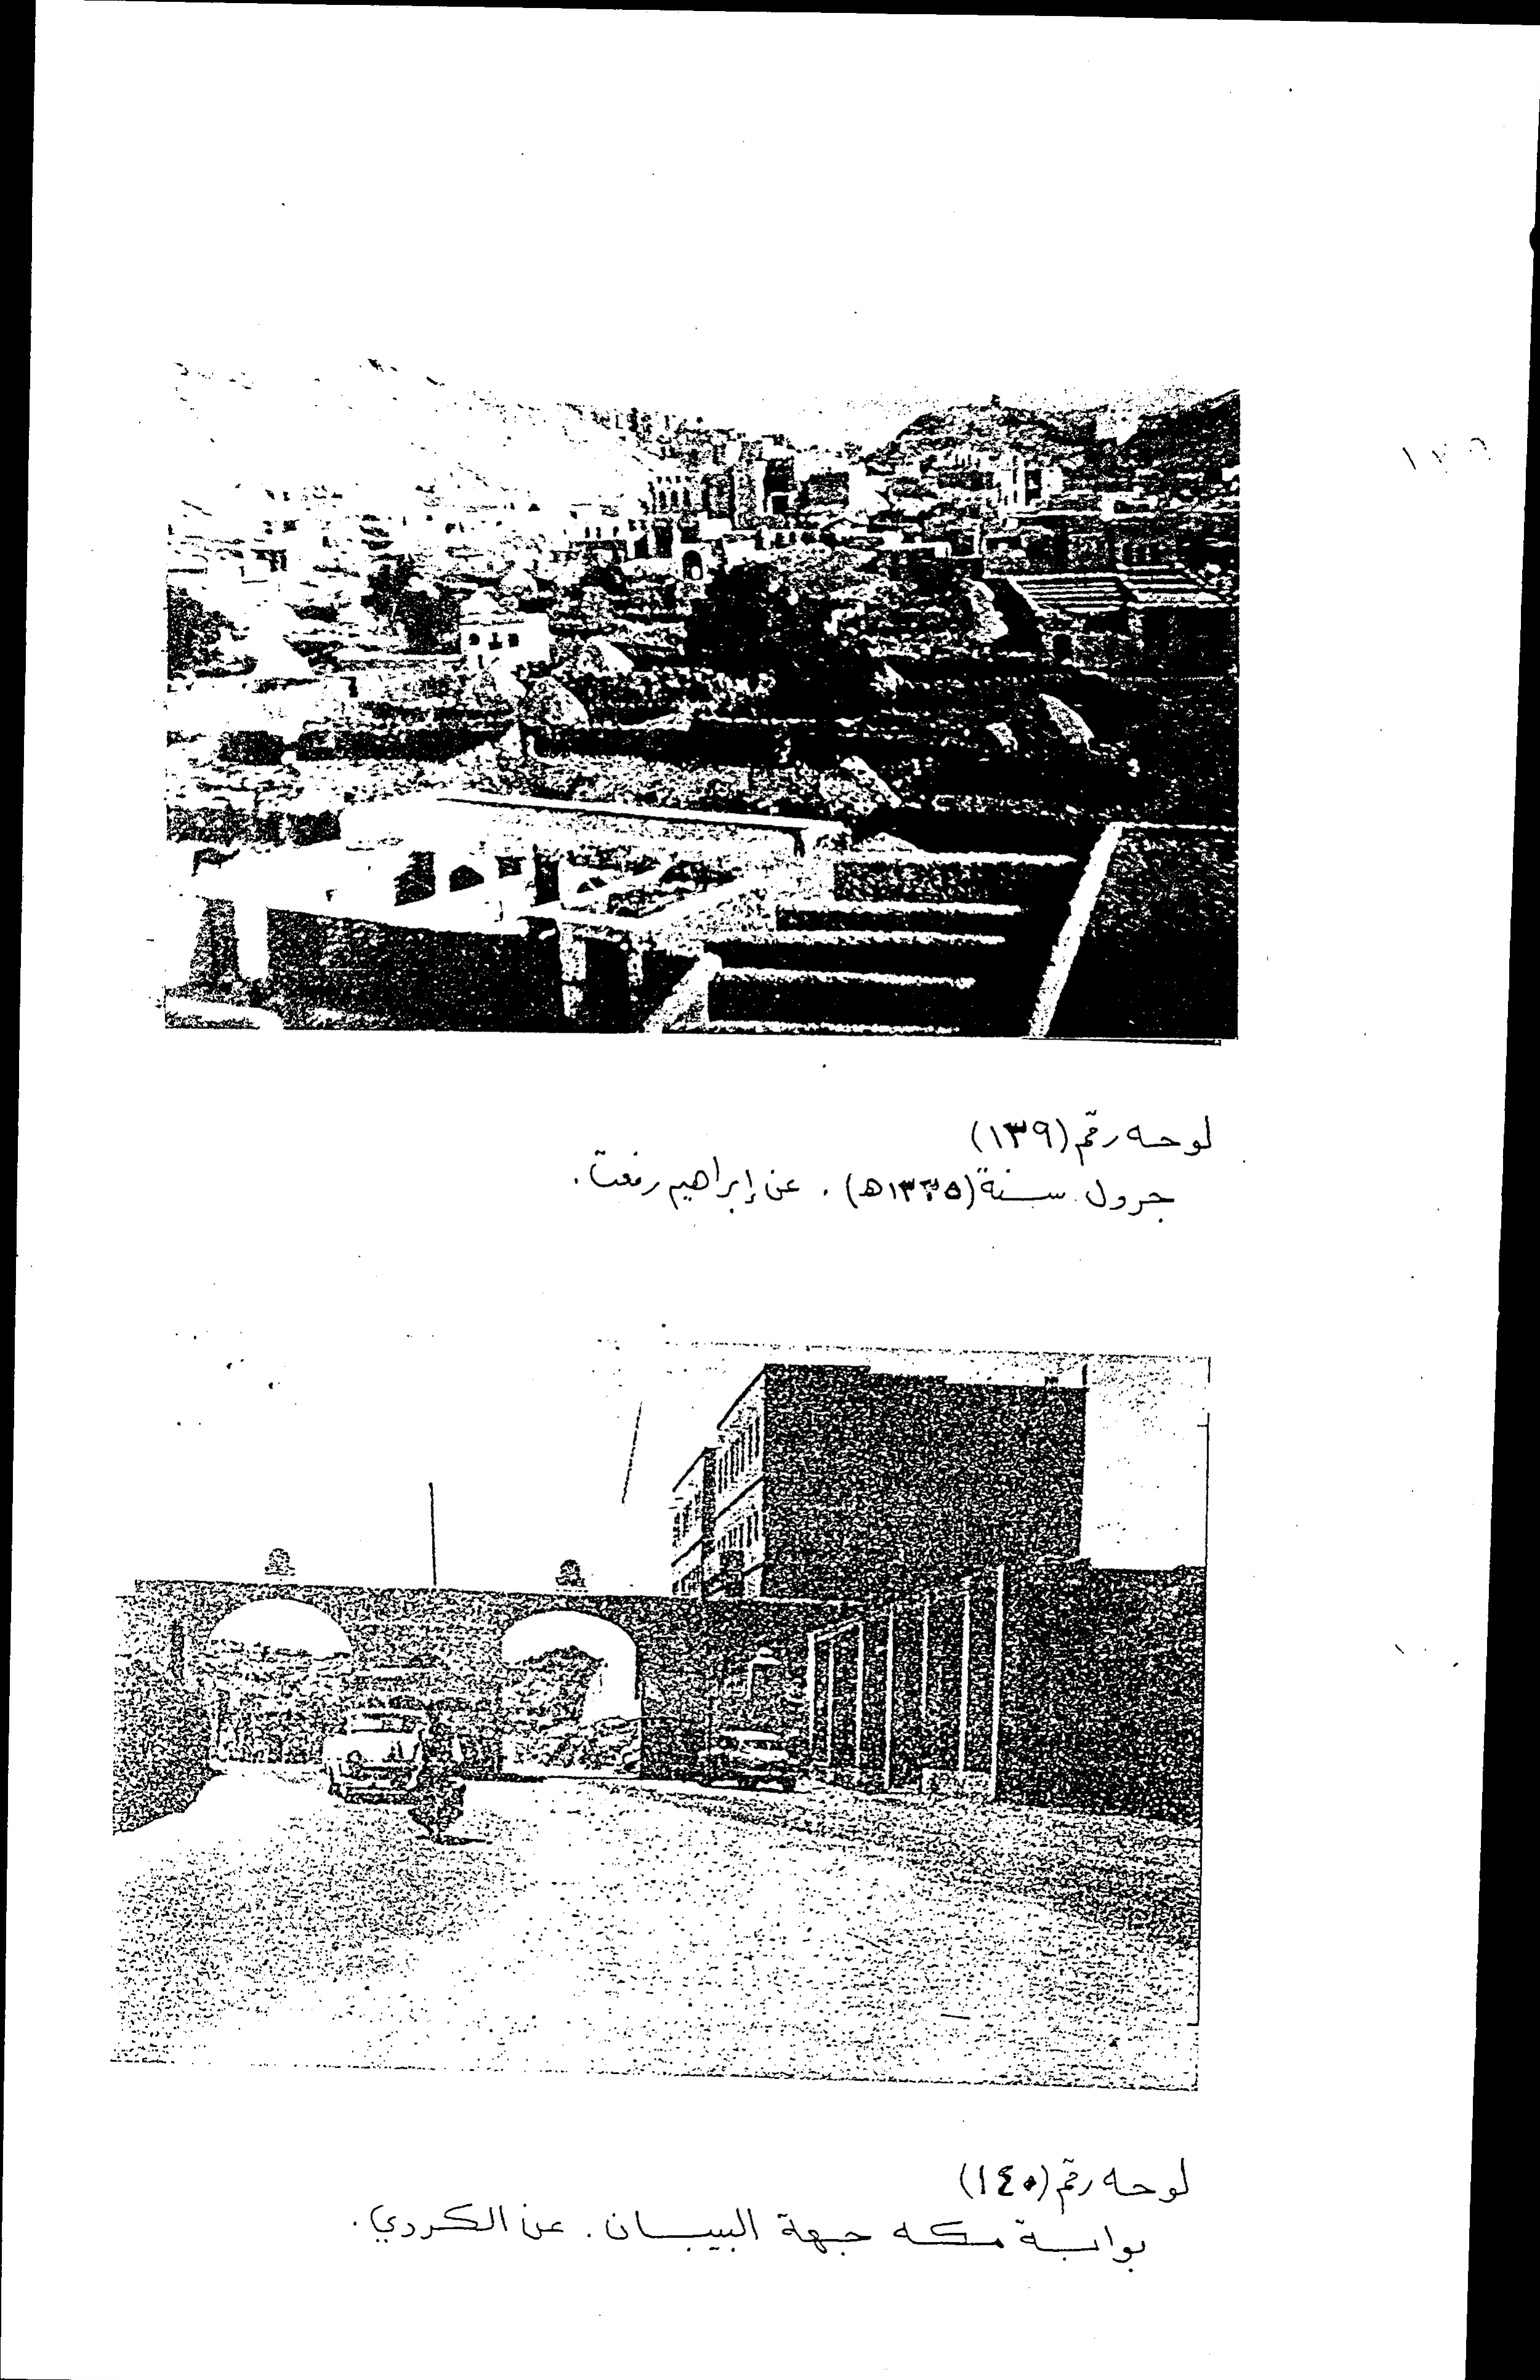 لوحه رقم (١٣٩)
جرول سنة (١٣٢٥هـ) . عن إبراهيم رفعت .
لوحه رقم (١٤٠)
بوابة مكه جهة البيبان . عن الكردي .